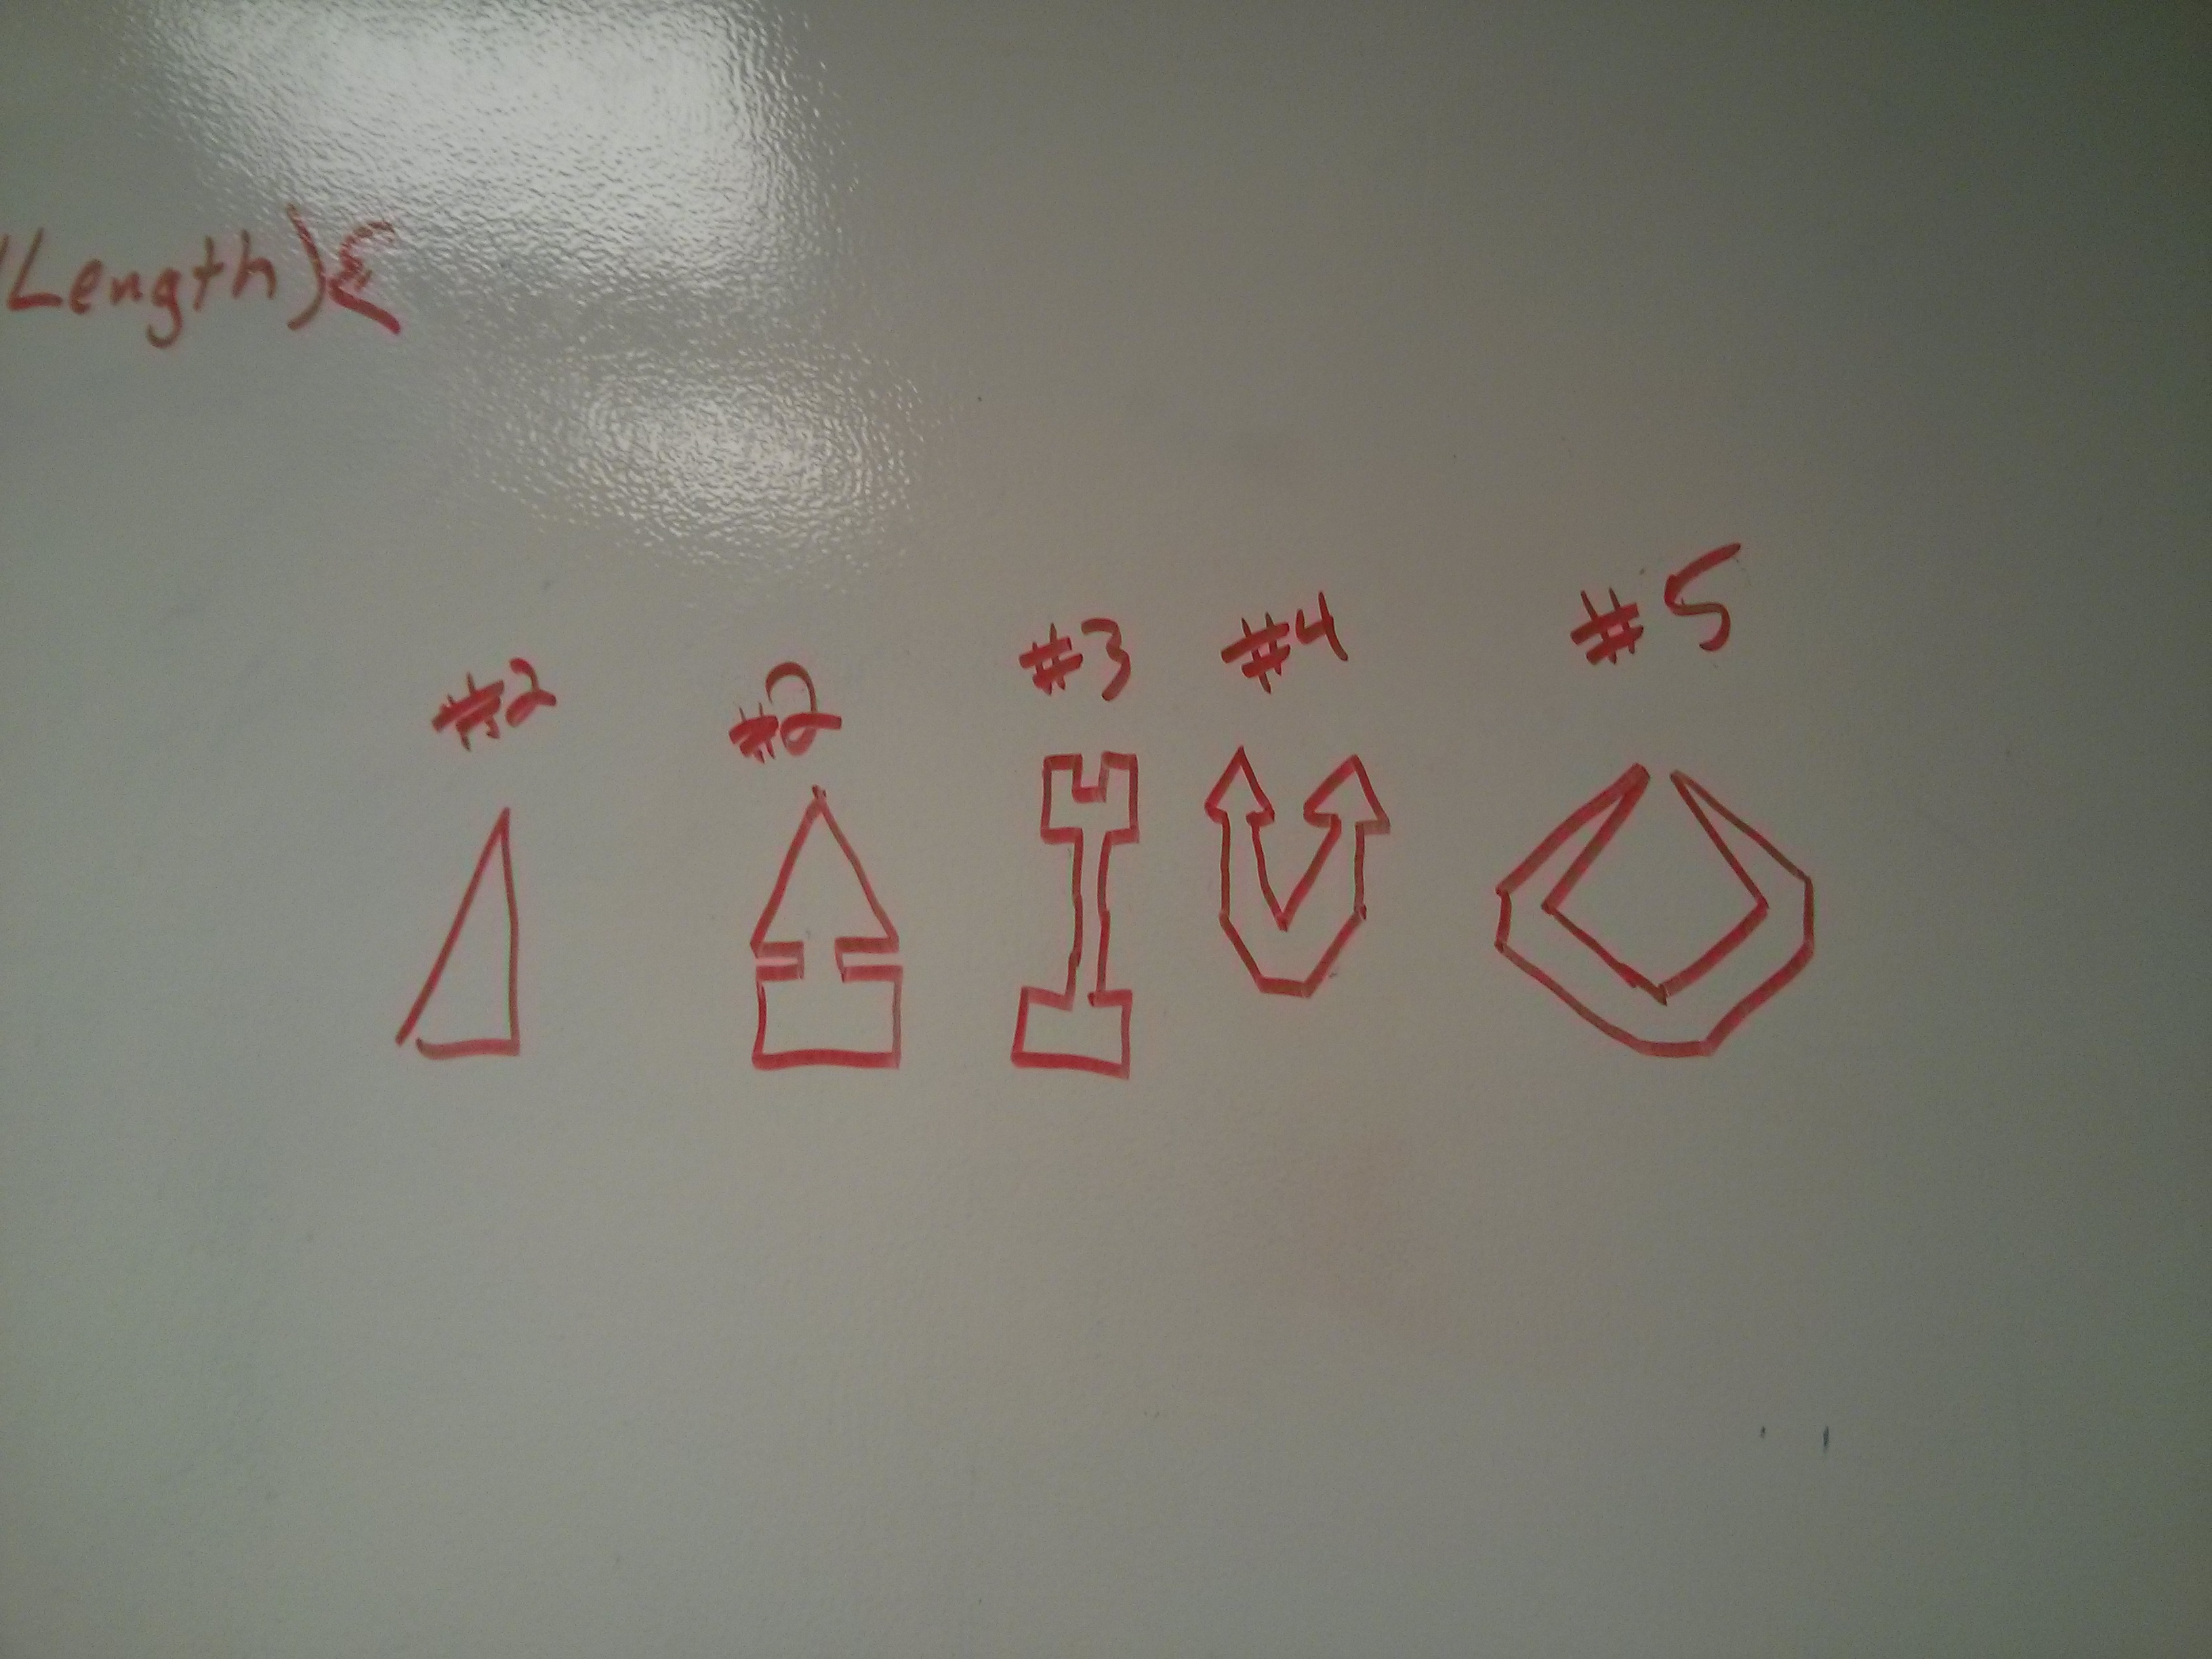 Length){
#2 #2 #3 #4 #5